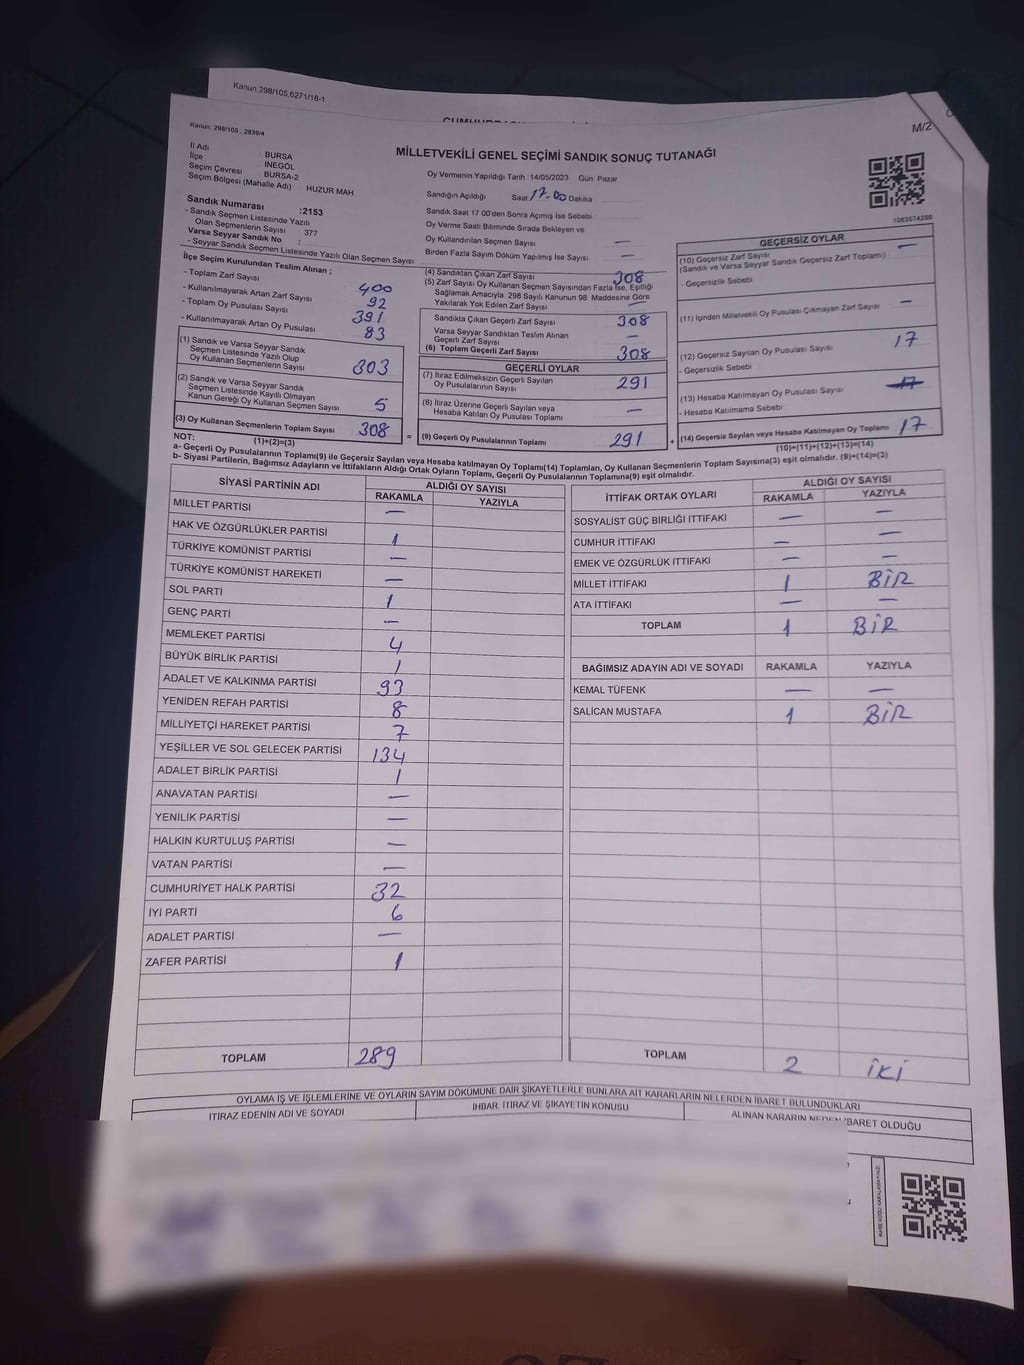 Kanun,298/105,6271/18-1
Kanun: 298/105 , 2839/4
M/2
MİLLETVEKİLİ GENEL SEÇİMİ SANDIK SONUÇ TUTANAĞI
İl Adı : BURSA
İlçe : İNEGÖL
Seçim Çevresi : BURSA-2
Seçim Bölgesi (Mahalle Adı) HUZUR MAH
Sandık Numarası :2153
- Sandık Seçmen Listesinde Yazılı
Olan Seçmenlerin Sayısı : 377
Varsa Seyyar Sandık No :
- Seyyar Sandık Seçmen Listesinde Yazılı Olan Seçmen Sayısı
Oy Vermenin Yapıldığı Tarih :14/05/2023 Gün: Pazar
Sandığın Açıldığı Saat 17.00 Dakika
Sandık Saat 17.00'den Sonra Açılmış İse Sebebi
Oy Verme Saati Bitiminde Sırada Bekleyen ve
Oy Kullandırılan Seçmen Sayısı —
Birden Fazla Sayım Döküm Yapılmış İse Sayısı —
1083574286
İlçe Seçim Kurulundan Teslim Alınan ;
- Toplam Zarf Sayısı 400
- Kullanılmayarak Artan Zarf Sayısı 92
- Toplam Oy Pusulası Sayısı 391
- Kullanılmayarak Artan Oy Pusulası 83
(1) Sandık ve Varsa Seyyar Sandık
Seçmen Listesinde Yazılı Olup
Oy Kullanan Seçmenlerin Sayısı 303
(2) Sandık ve Varsa Seyyar Sandık
Seçmen Listesinde Kayıtlı Olmayan
Kanun Gereği Oy Kullanan Seçmen Sayısı 5
(3) Oy Kullanan Seçmenlerin Toplam Sayısı 308
(4) Sandıktan Çıkan Zarf Sayısı 308
(5) Zarf Sayısı Oy Kullanan Seçmen Sayısından Fazla İse, Eşitliği
Sağlamak Amacıyla, 298 Sayılı Kanunun 98. Maddesine Göre
Yakılarak Yok Edilen Zarf Sayısı —
Sandıkta Çıkan Geçerli Zarf Sayısı 308
Varsa Seyyar Sandıktan Teslim Alınan
Geçerli Zarf Sayısı —
(6) Toplam Geçerli Zarf Sayısı 308
GEÇERLİ OYLAR
(7) İtiraz Edilmeksizin Geçerli Sayılan
Oy Pusulalarının Sayısı 291
(8) İtiraz Üzerine Geçerli Sayılan veya
Hesaba Katılan Oy Pusulası Toplamı —
= (9) Geçerli Oy Pusulalarının Toplamı 291
GEÇERSİZ OYLAR
(10) Geçersiz Zarf Sayısı —
(Sandık ve Varsa Seyyar Sandık Geçersiz Zarf Toplamı)
- Geçersizlik Sebebi
(11) İçinden Milletvekili Oy Pusulası Çıkmayan Zarf Sayısı —
(12) Geçersiz Sayılan Oy Pusulası Sayısı 17
- Geçersizlik Sebebi
(13) Hesaba Katılmayan Oy Pusulası Sayısı 17
- Hesaba Katılmama Sebebi
+ (14) Geçersiz Sayılan veya Hesaba Katılmayan Oy Toplamı 17
NOT: (1)+(2)=(3)
(10)+(11)+(12)+(13)=(14)
a- Geçerli Oy Pusulalarının Toplamı(9) ile Geçersiz Sayılan veya Hesaba katılmayan Oy Toplamı(14) Toplamları, Oy Kullanan Seçmenlerin Toplam Sayısına(3) eşit olmalıdır. (9)+(14)=(3)
b- Siyasi Partilerin, Bağımsız Adayların ve İttifakların Aldığı Ortak Oyların Toplamı, Geçerli Oy Pusulalarının Toplamına(9) eşit olmalıdır.
SİYASİ PARTİNİN ADI ALDIĞI OY SAYISI
RAKAMLA YAZIYLA
MİLLET PARTİSİ —
HAK VE ÖZGÜRLÜKLER PARTİSİ 1
TÜRKİYE KOMÜNİST PARTİSİ —
TÜRKİYE KOMÜNİST HAREKETİ —
SOL PARTİ 1
GENÇ PARTİ —
MEMLEKET PARTİSİ 4
BÜYÜK BİRLİK PARTİSİ 1
ADALET VE KALKINMA PARTİSİ 93
YENİDEN REFAH PARTİSİ 8
MİLLİYETÇİ HAREKET PARTİSİ 7
YEŞİLLER VE SOL GELECEK PARTİSİ 134
ADALET BİRLİK PARTİSİ 1
ANAVATAN PARTİSİ —
YENİLİK PARTİSİ —
HALKIN KURTULUŞ PARTİSİ —
VATAN PARTİSİ —
CUMHURİYET HALK PARTİSİ 32
İYİ PARTİ 6
ADALET PARTİSİ —
ZAFER PARTİSİ 1
TOPLAM 289
İTTİFAK ORTAK OYLARI ALDIĞI OY SAYISI
RAKAMLA YAZIYLA
SOSYALİST GÜÇ BİRLİĞİ İTTİFAKI — —
CUMHUR İTTİFAKI — —
EMEK VE ÖZGÜRLÜK İTTİFAKI — —
MİLLET İTTİFAKI 1 BİR
ATA İTTİFAKI — —
TOPLAM 1 BİR
BAĞIMSIZ ADAYIN ADI VE SOYADI RAKAMLA YAZIYLA
KEMAL TÜFENK — —
SALİCAN MUSTAFA 1 BİR
TOPLAM 2 İKİ
OYLAMA İŞ VE İŞLEMLERİNE VE OYLARIN SAYIM DÖKÜMÜNE DAİR ŞİKAYETLERLE BUNLARA AİT KARARLARIN NELERDEN İBARET BULUNDUKLARI
İTİRAZ EDENİN ADI VE SOYADI İHBAR, İTİRAZ VE ŞİKAYETİN KONUSU ALINAN KARARIN NEDEN İBARET OLDUĞU
KARE KODU KARALAMAYINIZ!